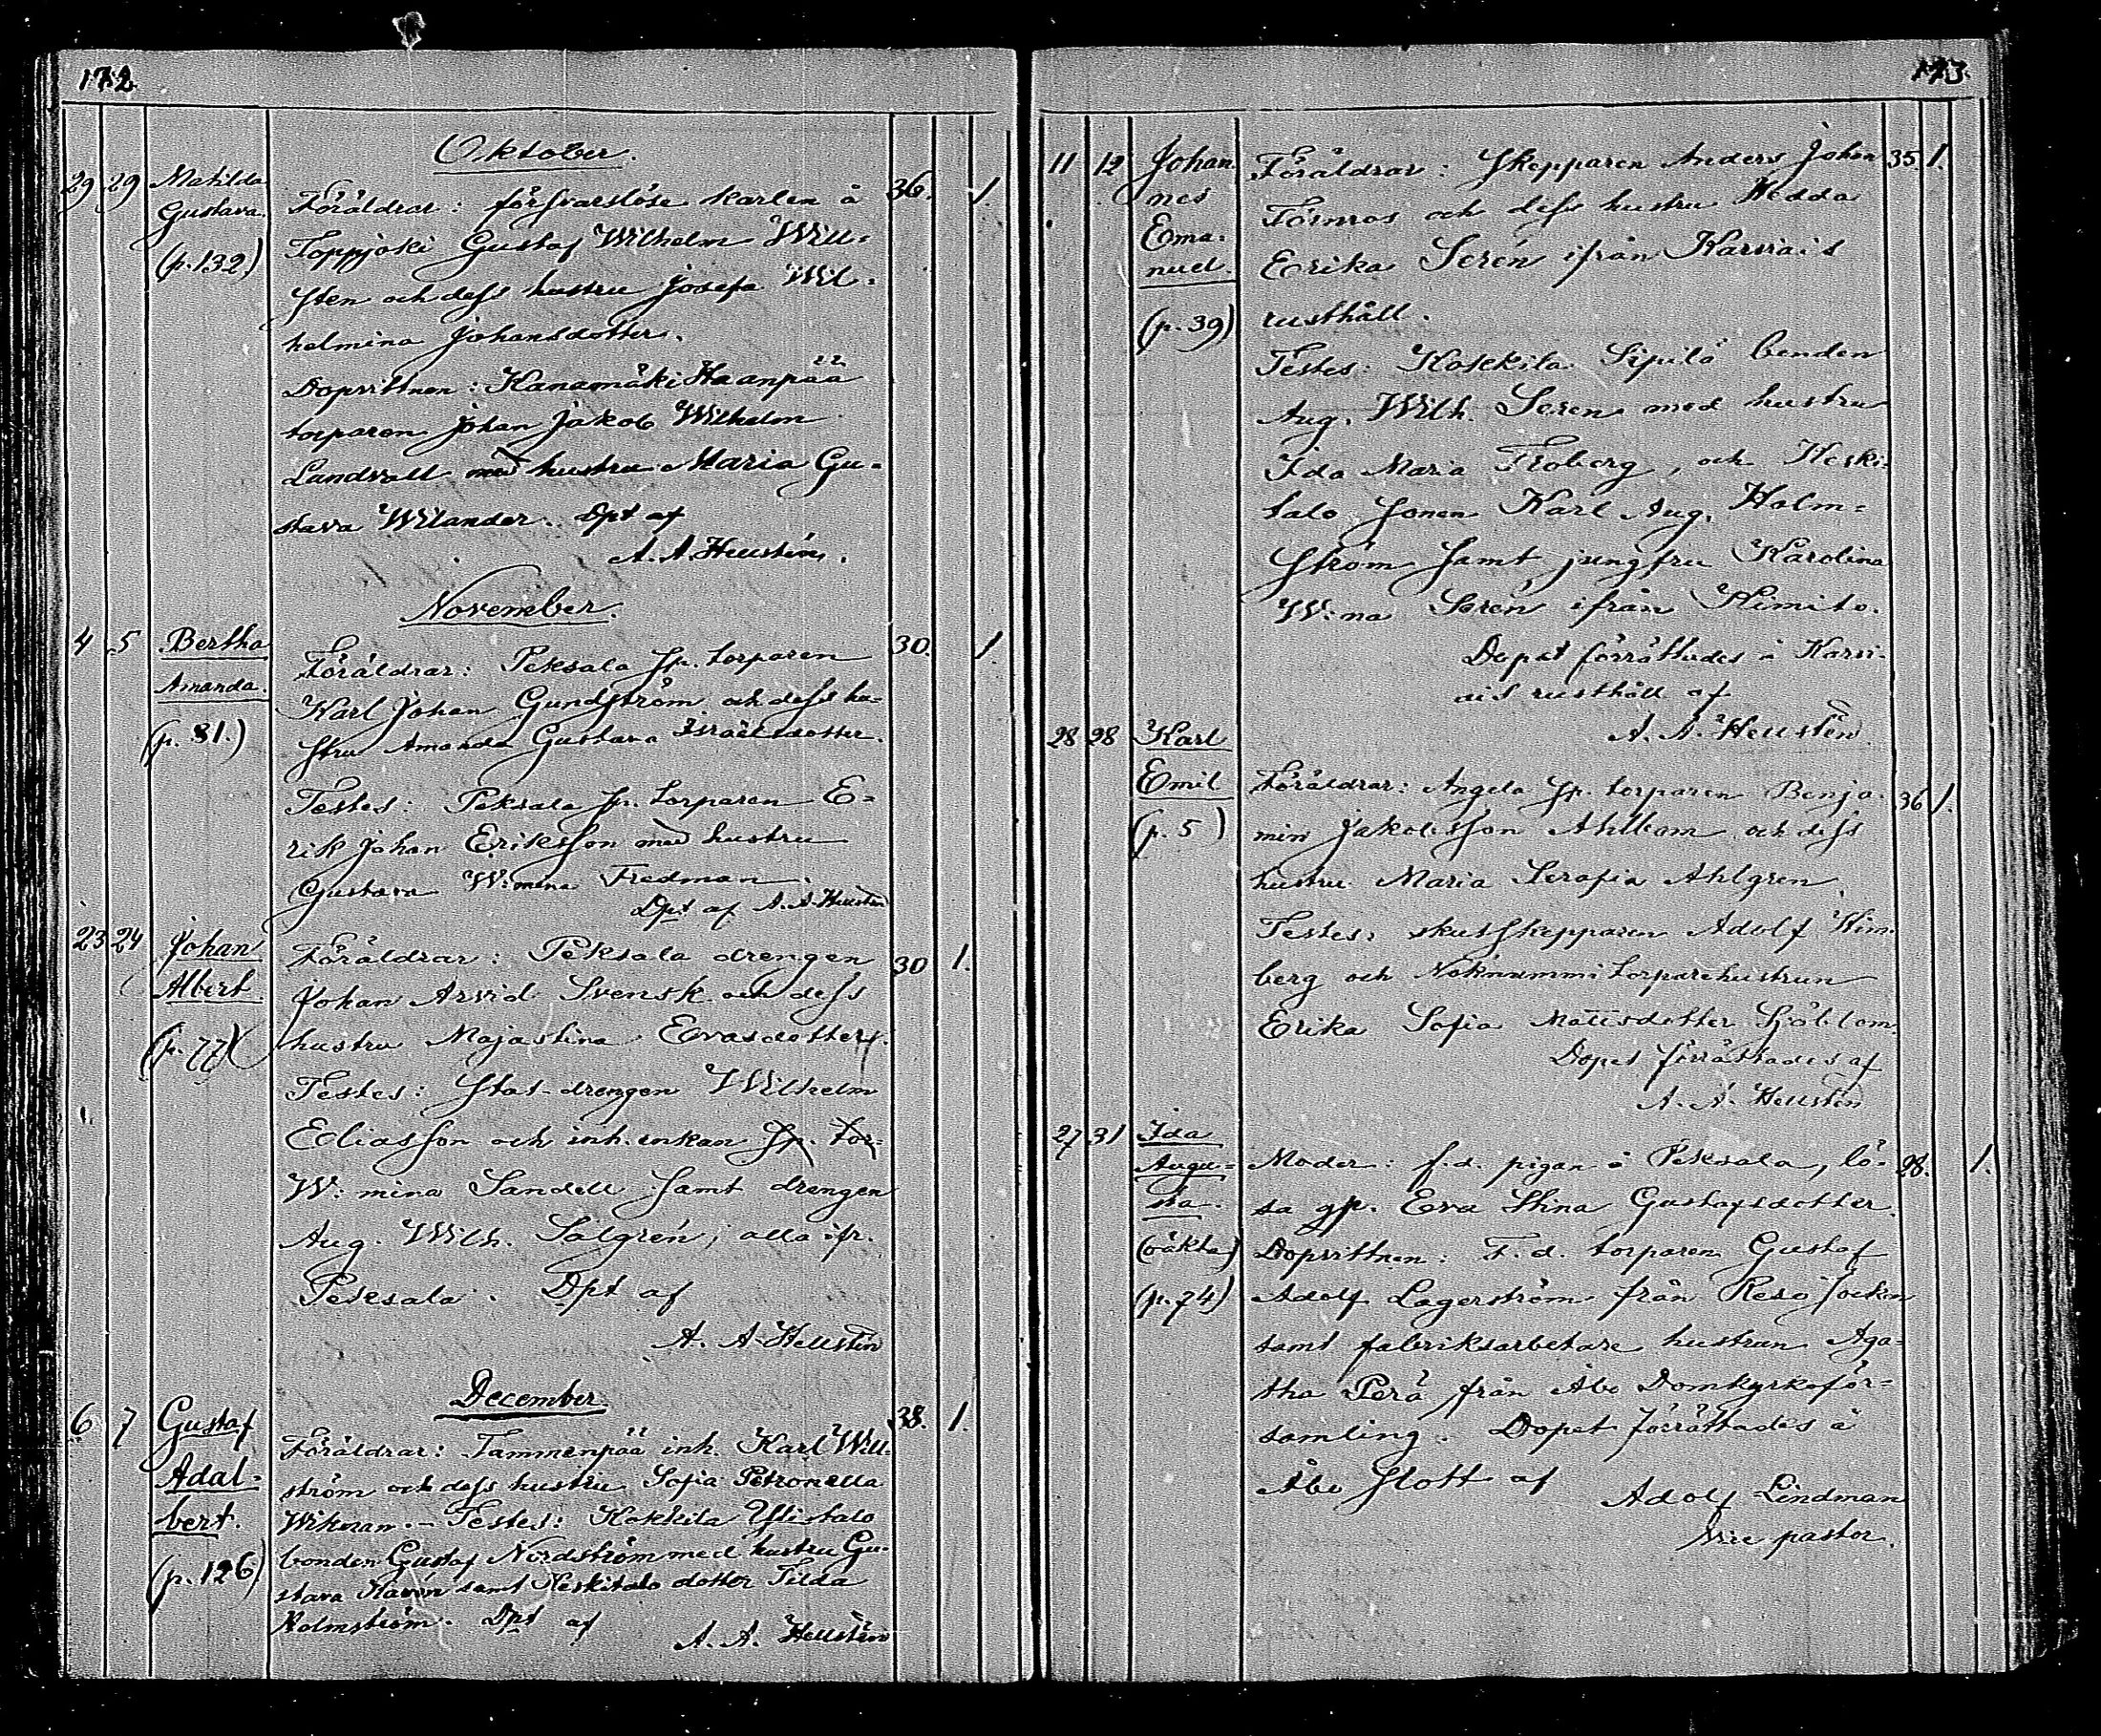 172.
Oktober.
29 29 Matilda
Gustava.
(p. 132)
Föräldrar: försvarslöse karlen å 36. 1.
Toppjoki Gustaf Wilhelm Will=
sten och dess hustru Josefa Wil=
helmina Johansdotter.
Dopvittnen: Kanamäki Haanpää
torparen Johan Jakob Wilhelm
Landvall med hustru Maria Gu=
stava Wilander. Dpt af
A. A. Hellstén.
November.
4 5 Bertha
Amanda.
(p. 81.)
Föräldrar: Peksala sp. torparen 30. 1.
Karl Johan Gundström och dess hu=
stru Amanda Gustava Israelsdotter.
Testes: Peksala sp. torparen E=
rik Johan Eriksson med hustru
Gustava W:mina Fredman.
Dpt af A. A. Hellstén
23 24 Johan
Albert.
(p. 77)
Föräldrar: Peksala drengen 30 1.
Johan Arvid Svensk och dess
hustru Majastina Evasdotter.
Testes: Stat-drengen Wilhelm
Eliasson och inh. enkan sp. tor=
W:mina Sandell samt drengen
Aug. Wilh. Salgrén, alla ifr.
Peksala. Dpt af
A. A. Hellstén
December.
6 7 Gustaf
Adal=
bert.
(p. 126)
Föräldrar: Tammenpää inh. Karl Will= 38. 1.
ström och dess hustru Sofia Petronella
Wikman. – Testes: Kokkila Ylistalo
bonden Gustaf Nordström med hustru Gu=
stava Kavén samt Keskitalo dotter Tilda
Holmström. Dpt af
A. A. Hellstén
173.
11 12 Johan
nes
Ema=
nuel.
(p. 39)
Föräldrar: Skepparen Anders Johan 35. 1.
Törnros och dess hustru Hedda
Erika Serén ifrån Karviais
rusthåll.
Testes: Kokkila Sipilä bonden
Aug. Wilh. Seren med hustru
Ida Maria Froberg, och Keski=
talo sonen Karl Aug. Holm=
ström samt jungfru Karolina
W:na Serén ifrån Kimito.
Dopet förrättades å Karvi=
ais rusthåll af
A. A. Hellstén
28 28 Karl
Emil
(p. 5)
Föräldrar: Angela sp. torparen Benja= 36 1.
min Jakobsson Ahlbom och dess
hustru Maria Serafia Ahlgren.
Testes: skutskepparen Adolf Wim=
berg och Nokinummi torparehustrun
Erika Sofia Mattsdotter Sjöblom.
Dopet förrättades af
A. A. Hellstén
27 31 Ida
Augu=
sta.
(oäkta)
(p. 74)
Moder: f.d. pigan å Peksala, lö= 28. 1.
sa qp. Eva Stina Gustafsdotter.
Dopvittnen: F. d. torparen Gustaf
Adolf Lagerström från Reso socken
samt fabriksarbetare hustrun Aga=
tha Perä från Åbo Domkyrkoför=
samling. Dopet förrättades å
Åbo Slott af
Adolf Lindman
Vice pastor.